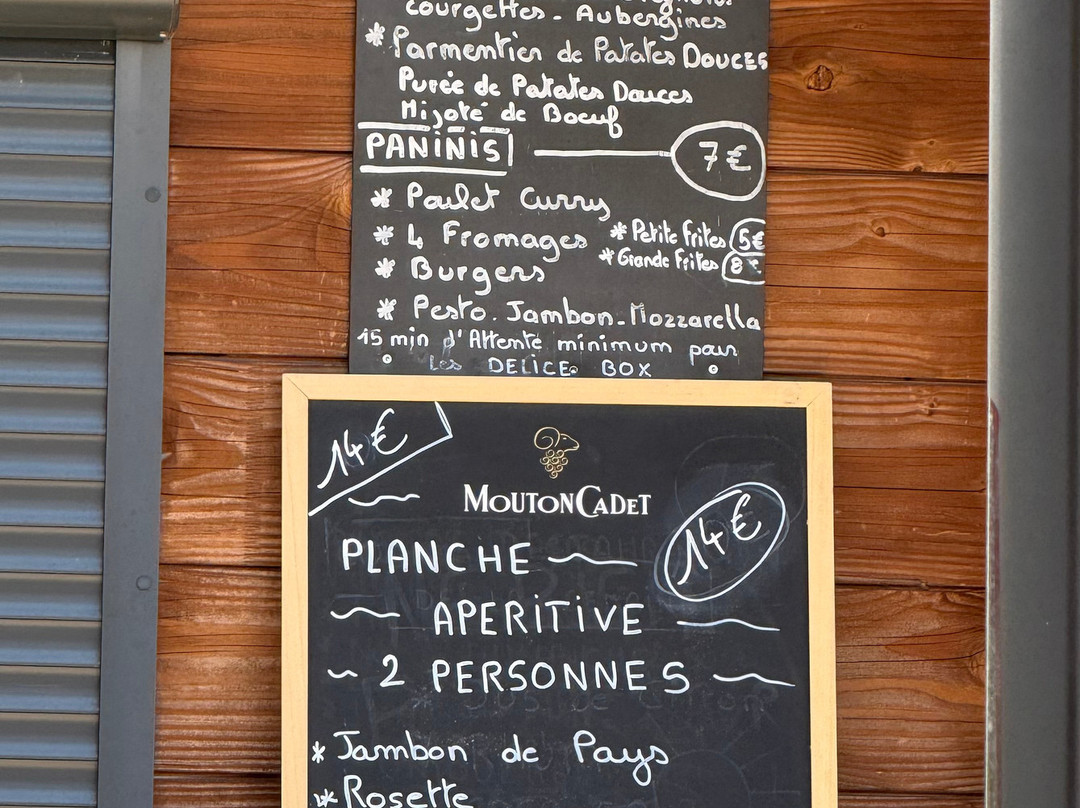 Courgettes - Aubergines
* Parmentier de Patates DOUCES
Purée de Patates Douces
Mijoté de Boeuf
PANINIS 7€
* Poulet Curry
* 4 Fromages
* Petite Frites 5€
* Grande Frites 8€
* Burgers
* Pesto. Jambon-Mozzarella
15 min d'Attente minimum pour
Les DELICE BOX
14€
MOUTON CADET
PLANCHE 14€
APERITIVE
2 PERSONNES
* Jambon de Pays
* Rosette